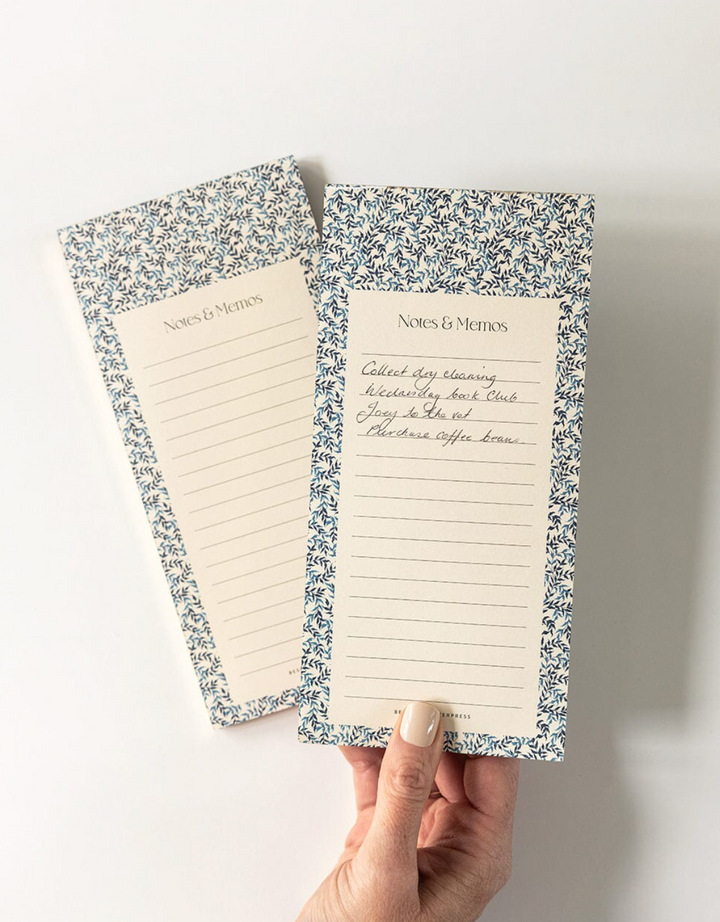 Notes & Memos
Notes & Memos
Collect dry cleaning
Wednesday book Club
Joey to the vet
Purchase coffee beans